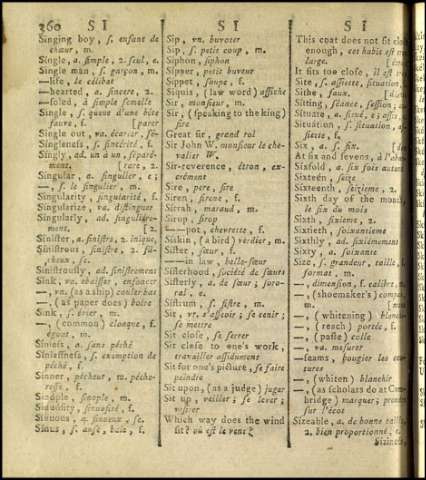 360 S I
Singing boy, s. enfant de
chœur, m.
Single, a. simple, 2. seul, e.
Single man, s. garçon, m.
—life, le célibat
—hearted, a. sincere, 2.
—soled, à simple semelle
Single, s. queue d'une bête
fauve, f. [parer
Single out, va. écarter, sé-
Singleness, s. sincérité, f.
Singly, ad. un à un, séparé-
ment, [rare, 2.
Singular, a. singulier, e;
—, s. le singulier, m.
Singularity, singularité, f.
Singularize, va. distinguer
Singularly, ad. singuliére-
ment, [2.
Sinister, a. sinistre, 2. inique,
Sinistrous, sinistre, 2. fâ-
cheux, se.
Sinistrously, ad. sinistrement
Sink, va. abaisser, enfoncer
—, vn. (as a ship) couler bas
—, (as paper does) boire
Sink, s. évier, m.
—, (common) cloaque, f.
égout, m.
Sinless, a. sans péché
Sinlessness, s. exemption de
péché, f.
Sinner, pécheur, m. péche-
resse, f.
Sinople, sinople, m.
Sinuosity, sinuosité, f.
Sinuous, a. sinueux, se.
Sinus, s. anse, baie, f.
S I
Sip, vn. buvoter
Sip, s. petit coup, m.
Siphon, siphon
Sippet, petit buveur
Sippet, soupe, f.
Siquis, (law word) affiche
Sir, monsieur, m.
Sir, (speaking to the king)
sire
Great sir, grand roi
Sir John W. monsieur le che-
valier W.
Sir-reverence, étron, ex-
crément
Sire, pere, sire
Siren, sirene, f.
Sirrah, maraud, m.
Sirup, sirop
—pot, chevrette, f.
Siskin, (a bird) verdier, m.
Sister, sœur, f.
—in law, belle-sœur
Sisterhood, société de sœurs
Sisterly, a. de sœur; soro-
rial, e.
Sistrum, s. sistre, m.
Sit, vr. s'asseoir; se tenir;
se mettre
Sit close, se serrer
Sit close to one's work,
travailler assidument
Sit for one's picture, se faire
peindre
Sit upon, (as a judge) juger
Sit up, veiller; se lever;
visiter
Which way does the wind
sit? où est le vent?
S I
This coat does not sit
enough, cet habit est
large. [
It sits too close, il est
Site, s. assiette, situation,
Sithe, faux,
Sitting, séance, session;
Situate, a. situé, e; assis,
Situation, s. situation,
siette, f.
Six, a. six, f.
At six and sevens, à l'aba
Sixfold, a. six fois autant
Sixteen, seize
Sixteenth, seizieme, 2.
Sixth day of the month,
le six du mois
Sixth, sixieme, 2.
Sixtieth, soixantieme
Sixthly, ad. sixiémement
Sixty, a. soixante
Size, s. grandeur, taille,
format, m.
—, dimension, f. calibre,
—, (shoemaker's) compas,
m.
—, (whitening) blanchir
—, (reach) portée, f.
—, (paste) colle
—, va. mesurer
—seams, bougier les cou-
tures
—, (whiten) blanchir
—, (as scholars do at Cam-
bridge) marquer; prendre
sur l'écot
Sizeable, a. de bonne taille,
2. bien proportionné, e.
Sizine